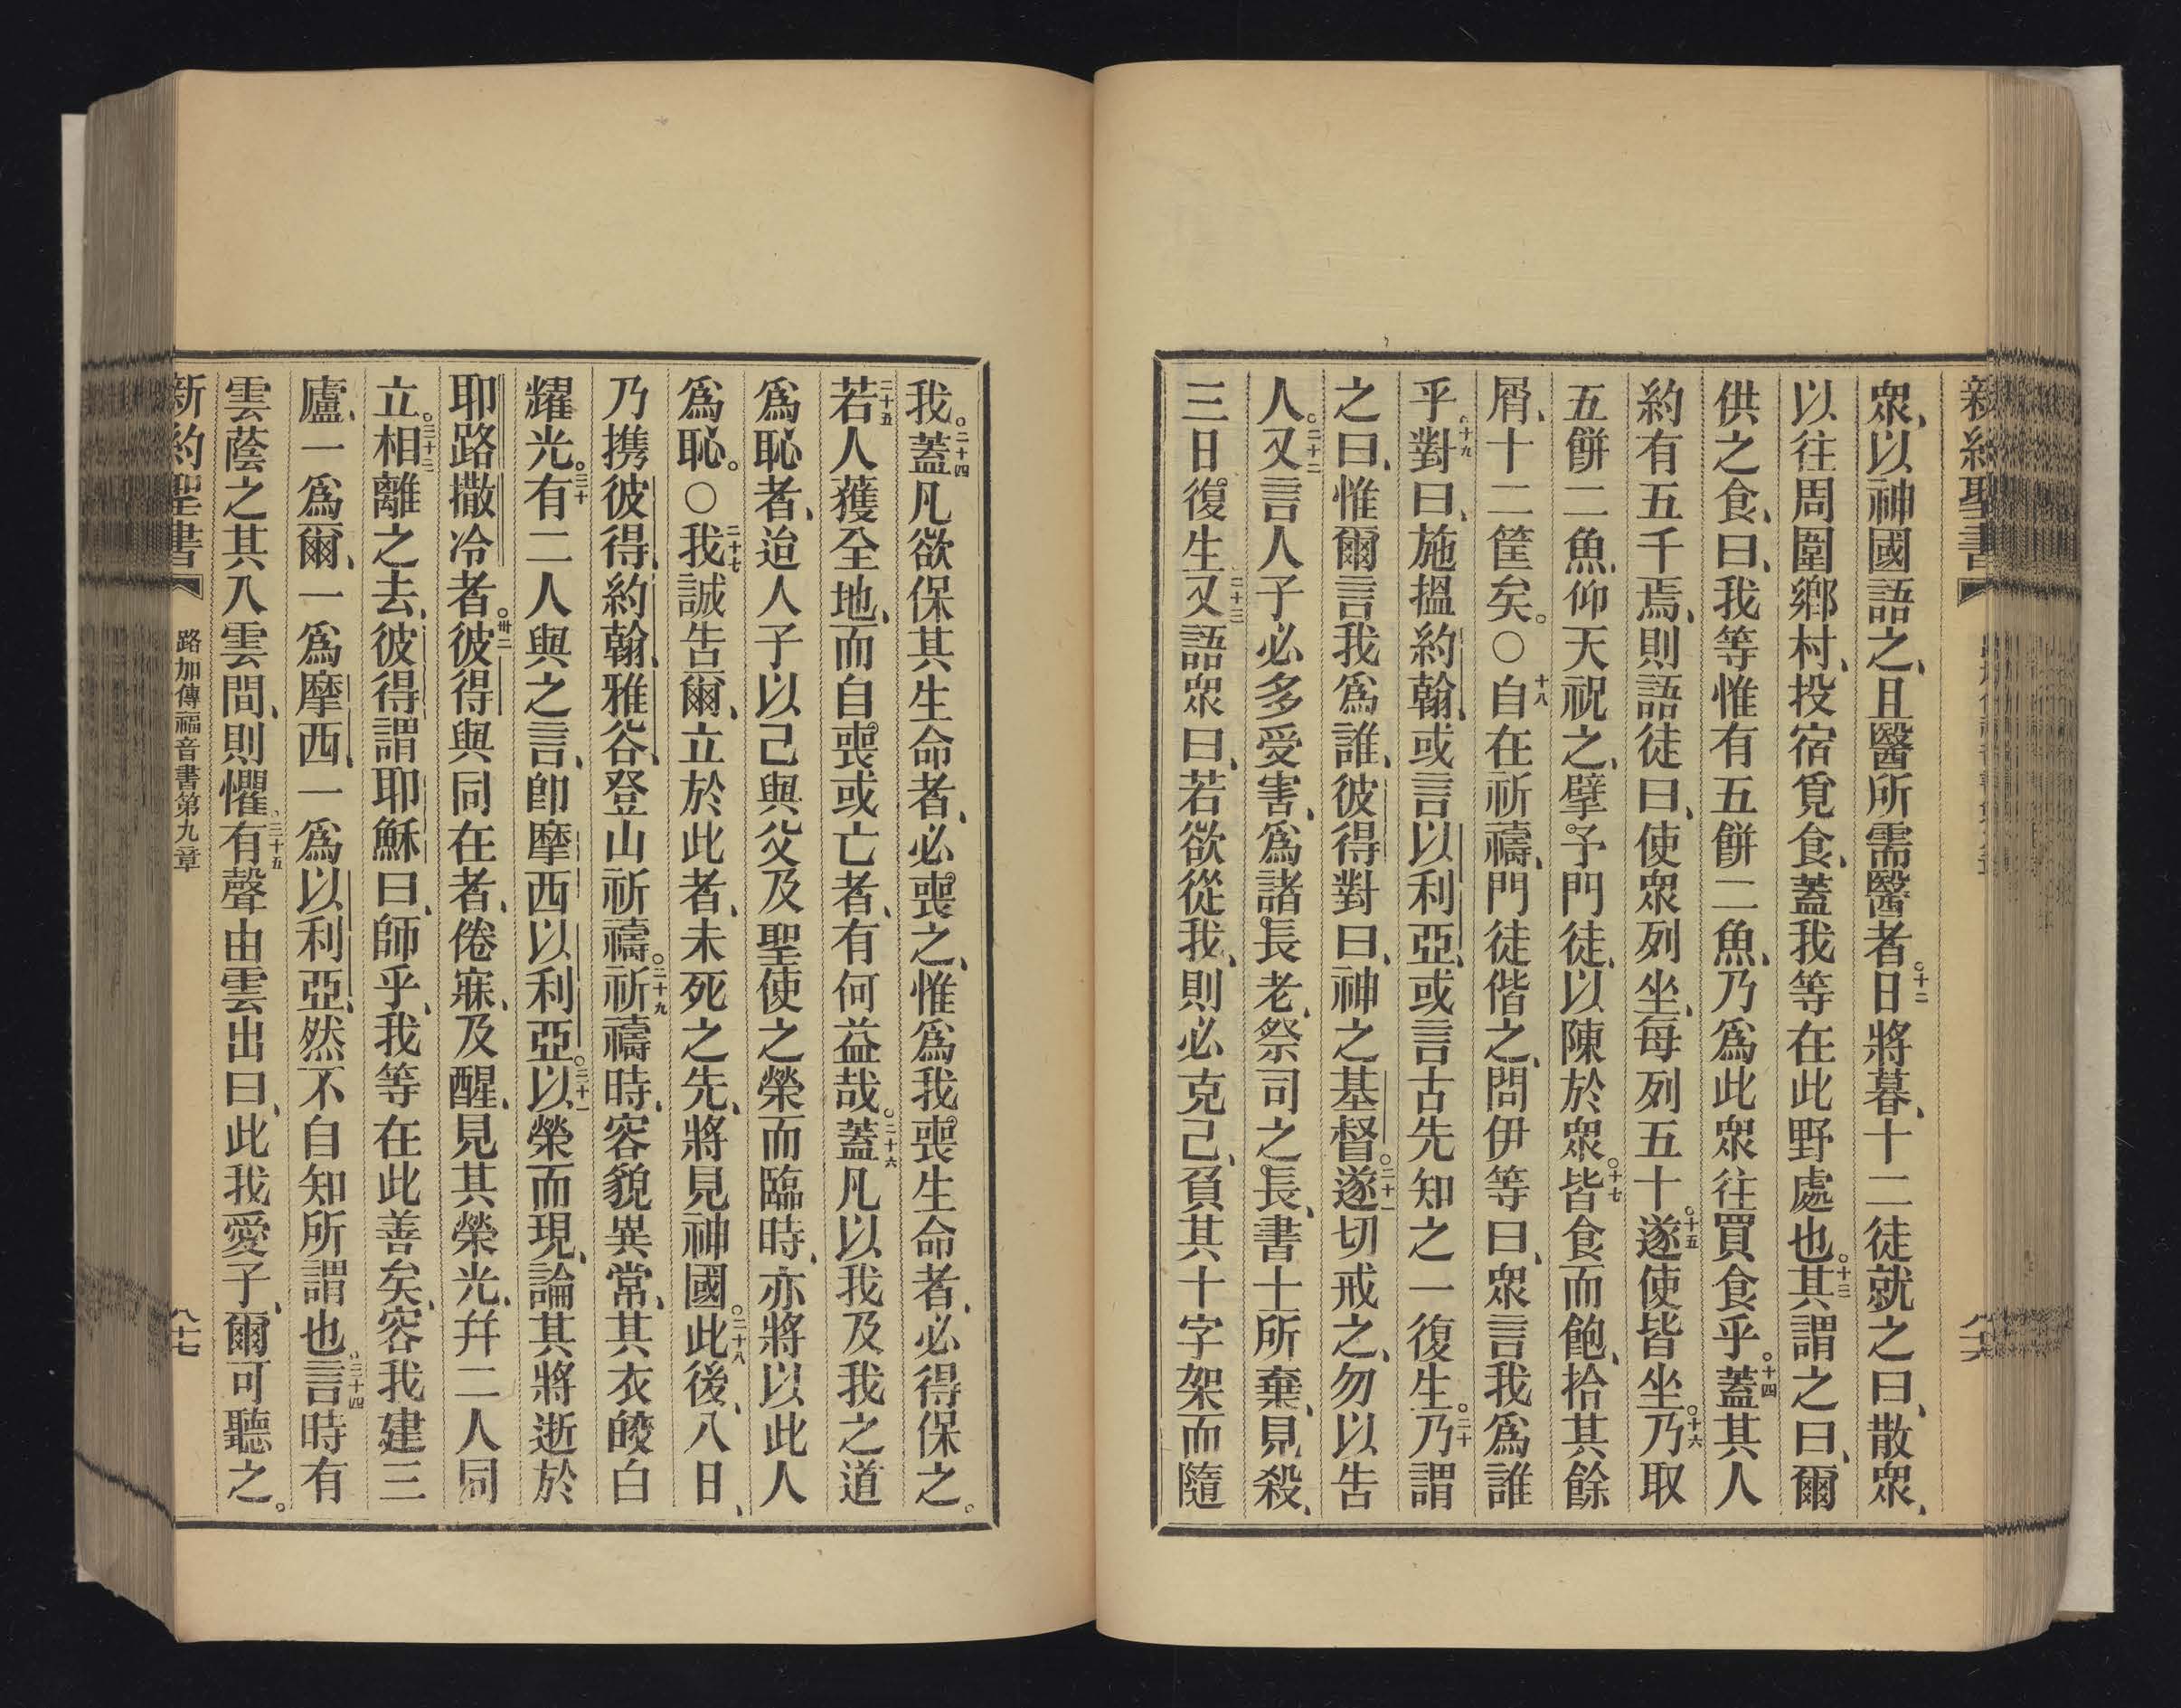 新約聖書
八十六
衆、以神國語之、且醫所需醫者。十二日將暮、十二徒就之曰、散衆、
以往周圍鄕村、投宿覓食、蓋我等在此野處也。十三其謂之曰、爾
供之食、曰、我等惟有五餅二魚、乃爲此衆往買食乎。十四蓋其人
約有五千焉、則語徒曰、使衆列坐、每列五十。十五遂使皆坐。十六乃取
五餅二魚、仰天祝之、擘予門徒、以陳於衆。十七皆食而飽、拾其餘
屑、十二筐矣。○十八自在祈禱、門徒偕之、問伊等曰、衆言我爲誰
乎。十九對曰、施搵約翰、或言以利亞、或言古先知之一復生。二十乃謂
之曰、惟爾言我爲誰、彼得對曰、神之基督。二十一遂切戒之、勿以告
人。二十二又言人子必多受害、爲諸長老、祭司之長、書士所棄、見殺、
三日復生。二十三又語衆曰、若欲從我、則必克己、負其十字架而隨
我。二十四蓋凡欲保其生命者、必喪之、惟爲我喪生命者、必得保之。
二十五若人獲全地、而自喪或亡者、有何益哉。二十六蓋凡以我及我之道
爲恥者、迨人子以己與父及聖使之榮而臨時、亦將以此人
爲恥。○二十七我誠告爾、立於此者、未死之先、將見神國。二十八此後、八日、
乃携彼得、約翰、雅各、登山祈禱。二十九祈禱時、容貌異常、其衣皎白
耀光。三十有二人與之言、卽摩西以利亞。三十一以榮而現、論其將逝於
耶路撒冷者。卅二彼得與同在者、倦寐、及醒、見其榮光、幷二人同
立。三十三相離之去、彼得謂耶穌曰、師乎、我等在此善矣、容我建三
廬、一爲爾、一爲摩西、一爲以利亞、然不自知所謂也。三十四言時有
雲蔭之其入雲間、則懼。三十五有聲由雲出曰、此我愛子、爾可聽之。
新約聖書
路加傳福音書第九章
八十七